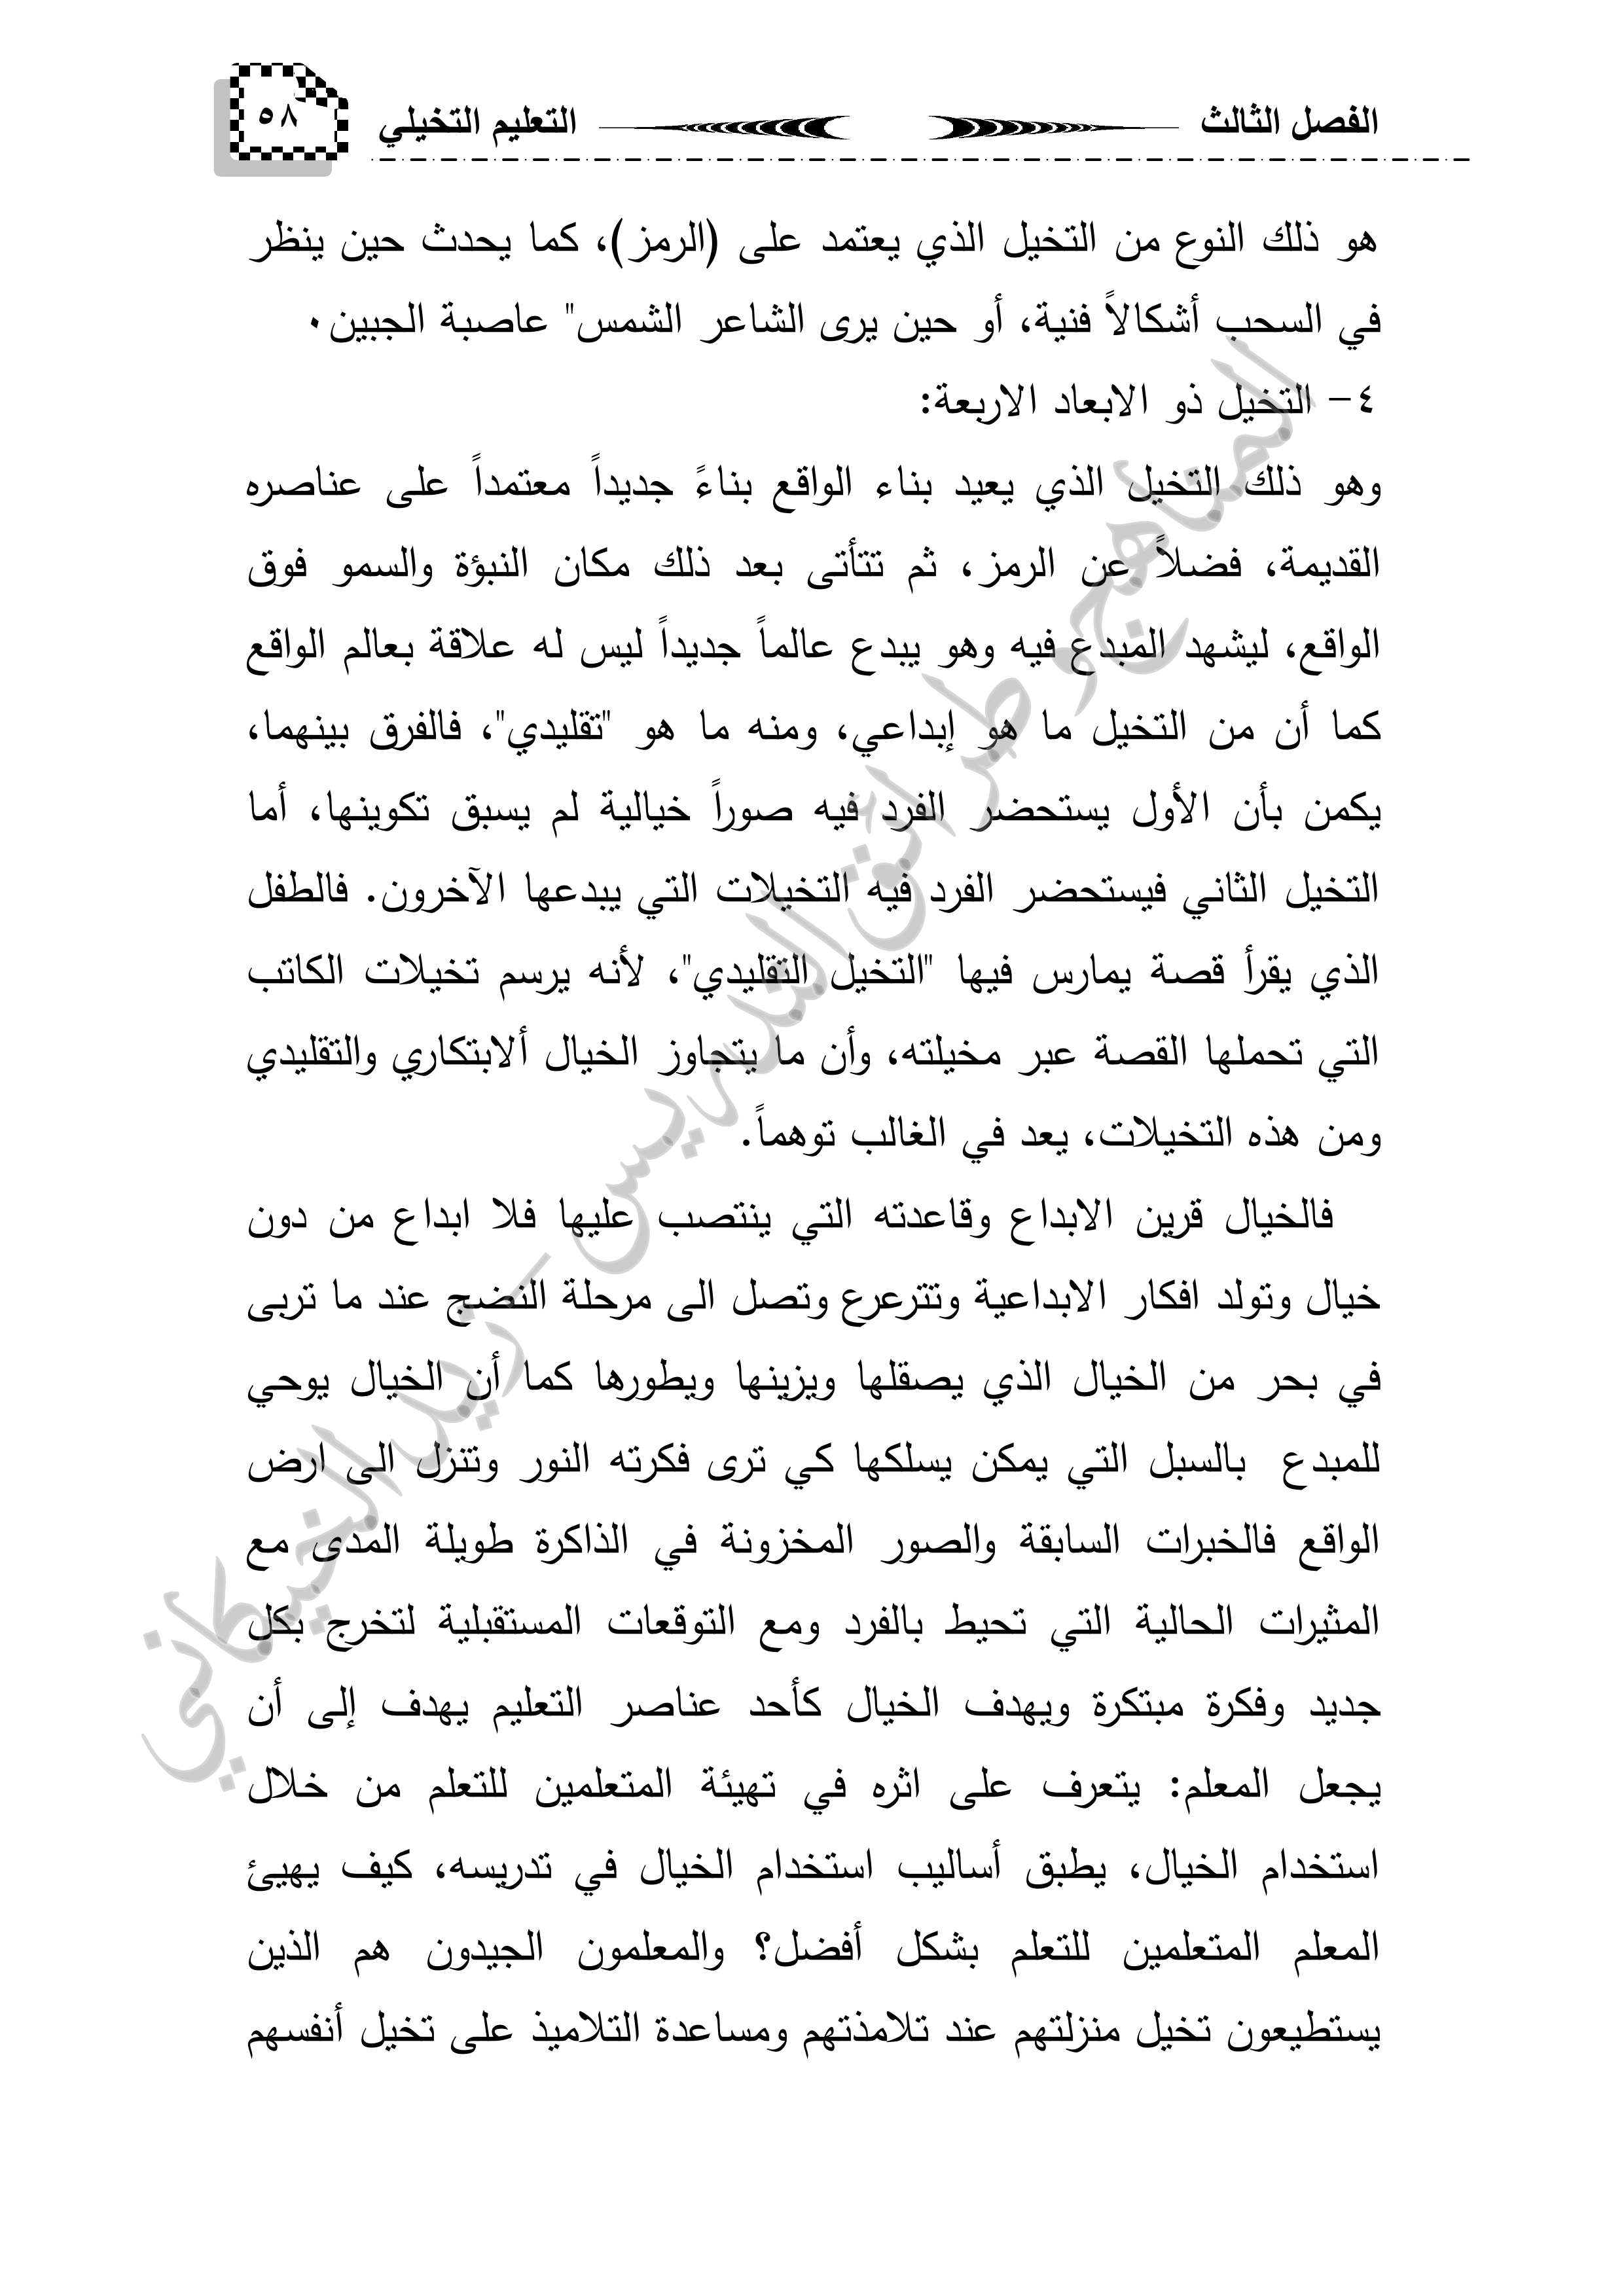 الفصل الثالث التعليم التخيلي ٥٨
هو ذلك النوع من التخيل الذي يعتمد على (الرمز)، كما يحدث حين ينظر
في السحب أشكالاً فنية، أو حين يرى الشاعر الشمس" عاصبة الجبين٠
٤- التخيل ذو الابعاد الاربعة:
وهو ذلك التخيل الذي يعيد بناء الواقع بناءً جديداً معتمداً على عناصره
القديمة، فضلاً عن الرمز، ثم تتأتى بعد ذلك مكان النبؤة والسمو فوق
الواقع، ليشهد المبدع فيه وهو يبدع عالماً جديداً ليس له علاقة بعالم الواقع
كما أن من التخيل ما هو إبداعي، ومنه ما هو "تقليدي"، فالفرق بينهما،
يكمن بأن الأول يستحضر الفرد فيه صوراً خيالية لم يسبق تكوينها، أما
التخيل الثاني فيستحضر الفرد فيه التخيلات التي يبدعها الآخرون. فالطفل
الذي يقرأ قصة يمارس فيها "التخيل التقليدي"، لأنه يرسم تخيلات الكاتب
التي تحملها القصة عبر مخيلته، وأن ما يتجاوز الخيال ألابتكاري والتقليدي
ومن هذه التخيلات، يعد في الغالب توهماً.
فالخيال قرين الابداع وقاعدته التي ينتصب عليها فلا ابداع من دون
خيال وتولد افكار الابداعية وتترعرع وتصل الى مرحلة النضج عند ما تربى
في بحر من الخيال الذي يصقلها ويزينها ويطورها كما أن الخيال يوحي
للمبدع بالسبل التي يمكن يسلكها كي ترى فكرته النور وتنزل الى ارض
الواقع فالخبرات السابقة والصور المخزونة في الذاكرة طويلة المدى مع
المثيرات الحالية التي تحيط بالفرد ومع التوقعات المستقبلية لتخرج بكل
جديد وفكرة مبتكرة ويهدف الخيال كأحد عناصر التعليم يهدف إلى أن
يجعل المعلم: يتعرف على اثره في تهيئة المتعلمين للتعلم من خلال
استخدام الخيال، يطبق أساليب استخدام الخيال في تدريسه، كيف يهيئ
المعلم المتعلمين للتعلم بشكل أفضل؟ والمعلمون الجيدون هم الذين
يستطيعون تخيل منزلتهم عند تلامذتهم ومساعدة التلاميذ على تخيل أنفسهم
المناهج وطرائق التدريس - زيد الخيكاني